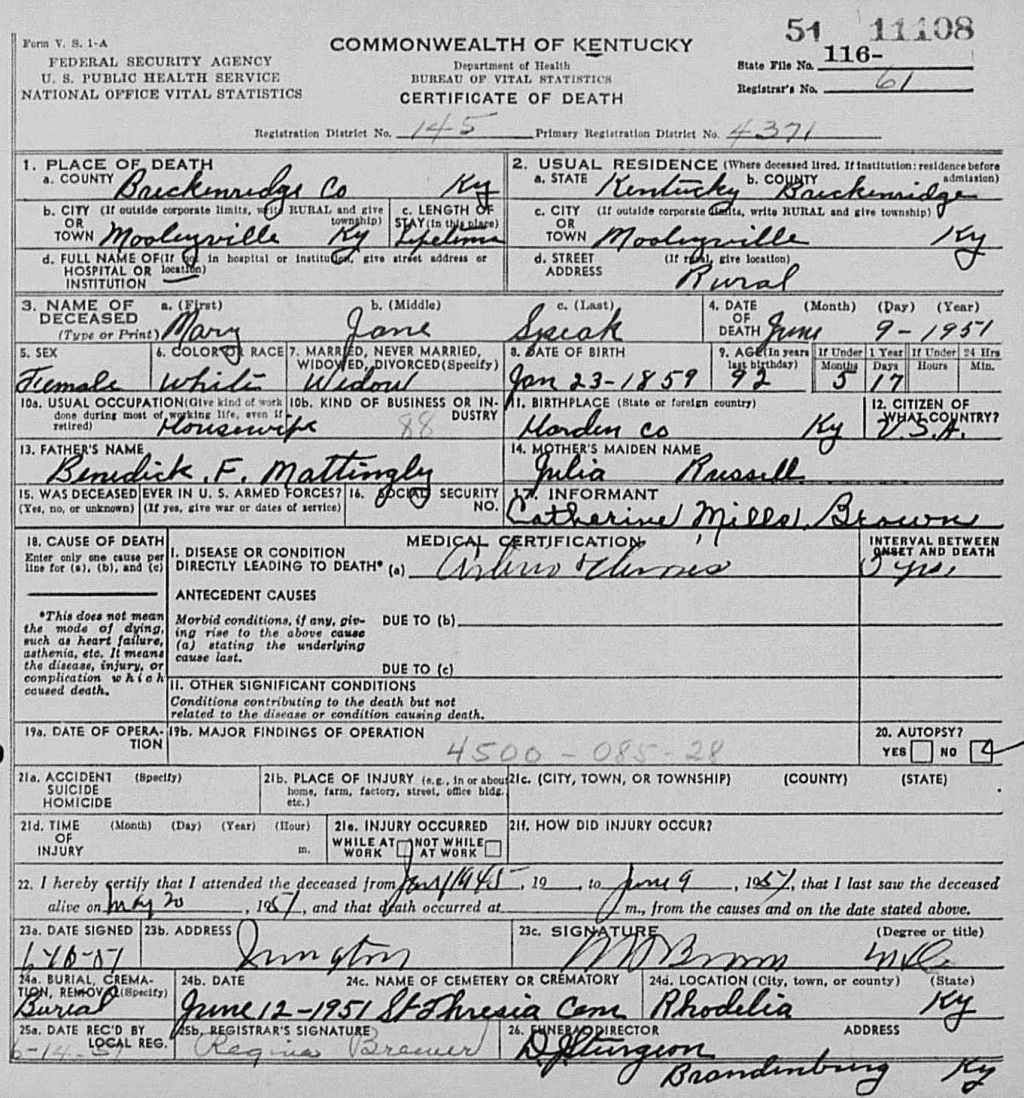 51 11108
Form V. S. 1-A
FEDERAL SECURITY AGENCY
U. S. PUBLIC HEALTH SERVICE
NATIONAL OFFICE VITAL STATISTICS
COMMONWEALTH OF KENTUCKY
Department of Health
BUREAU OF VITAL STATISTICS
CERTIFICATE OF DEATH
State File No. 116-
Registrar's No. 61
Registration District No. 145 Primary Registration District No. 4371
1. PLACE OF DEATH
a. COUNTY Breckenridge Co Ky
2. USUAL RESIDENCE (Where deceased lived. If institution: residence before admission)
a. STATE Kentucky b. COUNTY Breckenridge
b. CITY (If outside corporate limits, write RURAL and give township)
OR
TOWN Mooleyville Ky
c. LENGTH OF STAY (in this place) Lifetime
c. CITY (If outside corporate limits, write RURAL and give township)
OR
TOWN Mooleyville Ky
d. FULL NAME OF (If not in hospital or institution, give street address or location)
HOSPITAL OR
INSTITUTION
d. STREET ADDRESS (If rural, give location)
Rural
3. NAME OF DECEASED (Type or Print)
a. (First) b. (Middle) c. (Last)
Mary Jane Speak
4. DATE OF DEATH (Month) (Day) (Year)
June 9-1951
5. SEX
Female
6. COLOR OR RACE
White
7. MARRIED, NEVER MARRIED, WIDOWED, DIVORCED (Specify)
Widow
8. DATE OF BIRTH
Jan 23-1859
9. AGE (In years last birthday)
92
If Under 1 Year
Months Days
5 17
If Under 24 Hrs
Hours Min.
10a. USUAL OCCUPATION (Give kind of work done during most of working life, even if retired)
Housewife
10b. KIND OF BUSINESS OR INDUSTRY
88
11. BIRTHPLACE (State or foreign country)
Harden Co Ky
12. CITIZEN OF WHAT COUNTRY?
U.S.A.
13. FATHER'S NAME
Benedick. F. Mattingly
14. MOTHER'S MAIDEN NAME
Julia Russell
15. WAS DECEASED EVER IN U. S. ARMED FORCES?
(Yes, no, or unknown) (If yes, give war or dates of service)
16. SOCIAL SECURITY NO.
17. INFORMANT
Catherine Mills Brown
18. CAUSE OF DEATH
Enter only one cause per line for (a), (b), and (c)
MEDICAL CERTIFICATION
INTERVAL BETWEEN ONSET AND DEATH
I. DISEASE OR CONDITION DIRECTLY LEADING TO DEATH* (a)
yrs.
*This does not mean the mode of dying, such as heart failure, asthenia, etc. It means the disease, injury, or complication which caused death.
ANTECEDENT CAUSES
Morbid conditions, if any, giving rise to the above cause (a) stating the underlying cause last.
DUE TO (b)
DUE TO (c)
II. OTHER SIGNIFICANT CONDITIONS
Conditions contributing to the death but not related to the disease or condition causing death.
19a. DATE OF OPERATION
19b. MAJOR FINDINGS OF OPERATION
4500-085-28
20. AUTOPSY?
YES NO
21a. ACCIDENT (Specify)
SUICIDE
HOMICIDE
21b. PLACE OF INJURY (e.g., in or about home, farm, factory, street, office bldg. etc.)
21c. (CITY, TOWN, OR TOWNSHIP) (COUNTY) (STATE)
21d. TIME OF INJURY (Month) (Day) (Year) (Hour) m.
21e. INJURY OCCURRED
WHILE AT WORK NOT WHILE AT WORK
21f. HOW DID INJURY OCCUR?
22. I hereby certify that I attended the deceased from 1945, 19 , to June 9, 1951, that I last saw the deceased
alive on May 20, 1951, and that death occurred at m., from the causes and on the date stated above.
23a. DATE SIGNED
23b. ADDRESS
Irvington
23c. SIGNATURE (Degree or title)
MD
24a. BURIAL, CREMATION, REMOVAL (Specify)
Burial
24b. DATE
June 12-1951
24c. NAME OF CEMETERY OR CREMATORY
St Thresia Cem
24d. LOCATION (City, town, or county) (State)
Rhodelia Ky
25a. DATE REC'D BY LOCAL REG.
6-14-51
25b. REGISTRAR'S SIGNATURE
Regina Brewer
26. FUNERAL DIRECTOR ADDRESS
D J Sturgeon
Brandenburg Ky